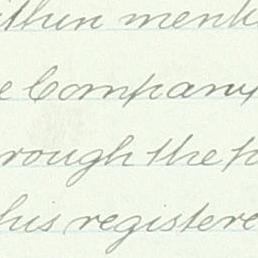 ithin menti
e Company
rough the p
his registere